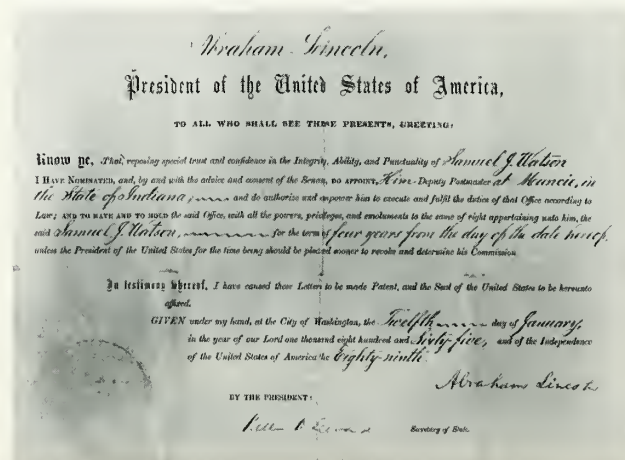 Abraham Lincoln,
President of the United States of America,
TO ALL WHO SHALL SEE THESE PRESENTS, GREETING:
Know ye, That, reposing special trust and confidence in the Integrity, Ability, and Punctuality of Samuel J. Watson
I HAVE NOMINATED, and, by and with the advice and consent of the Senate, DO APPOINT, Him Deputy Postmaster at Muncie, in
the State of Indiana, and do authorize and empower him to execute and fulfil the duties of that Office according to
Law; AND TO HAVE AND TO HOLD the said Office, with all the powers, privileges, and emoluments to the same of right appertaining unto him, the
said Samuel J. Watson, for the term of four years from the day of the date hereof,
unless the President of the United States for the time being should be pleased sooner to revoke and determine his Commission
In testimony whereof, I have caused these Letters to be made Patent, and the Seal of the United States to be hereunto
affixed.
GIVEN under my hand, at the City of Washington, the Twelfth day of January,
in the year of our Lord one thousand eight hundred and Sixty five, and of the Independence
of the United States of America the Eighty-ninth.
Abraham Lincoln
BY THE PRESIDENT:
Seward Secretary of State.